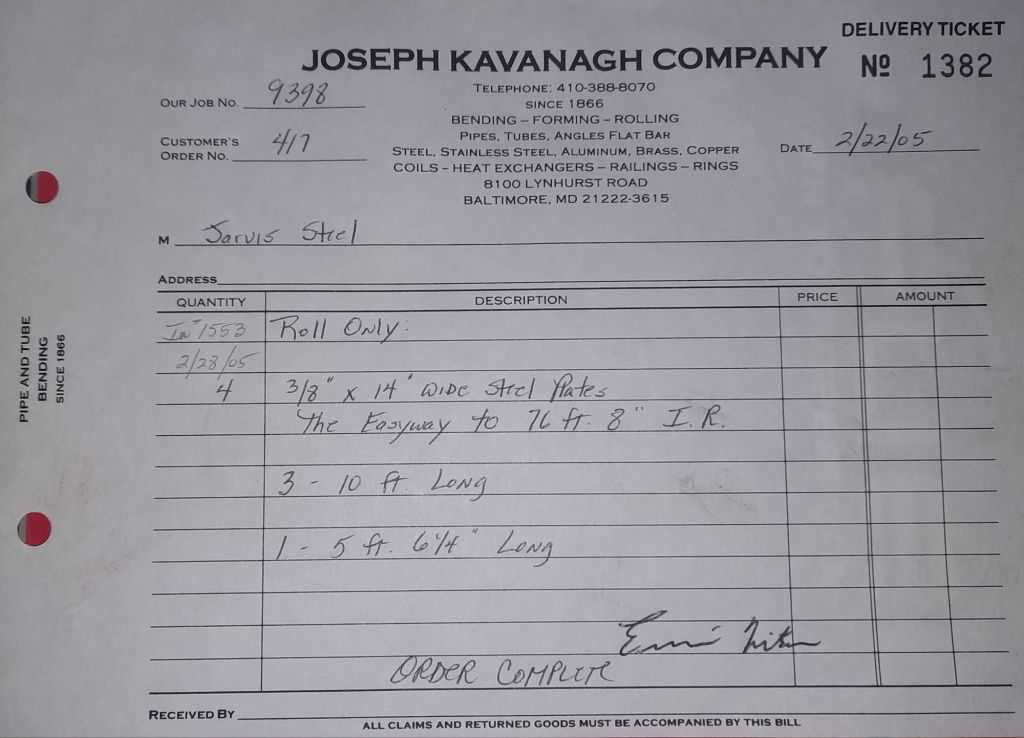 DELIVERY TICKET
JOSEPH KAVANAGH COMPANY
Nº 1382
TELEPHONE: 410-388-8070
SINCE 1866
BENDING – FORMING – ROLLING
PIPES, TUBES, ANGLES FLAT BAR
STEEL, STAINLESS STEEL, ALUMINUM, BRASS, COPPER
COILS – HEAT EXCHANGERS – RAILINGS – RINGS
8100 LYNHURST ROAD
BALTIMORE, MD 21222-3615
OUR JOB NO. 9398
CUSTOMER'S
ORDER NO. 417
DATE 2/22/05
M Jarvis Steel
ADDRESS
QUANTITY DESCRIPTION PRICE AMOUNT
1553 Roll Only:
2/28/05
4 3/8" x 14" WIDE Steel Plates
The Easyway to 76 ft. 8" I.R.
3 - 10 ft. Long
1 - 5 ft. 6 1/4" Long
ORDER COMPLETE
RECEIVED BY
ALL CLAIMS AND RETURNED GOODS MUST BE ACCOMPANIED BY THIS BILL
PIPE AND TUBE
BENDING
SINCE 1866